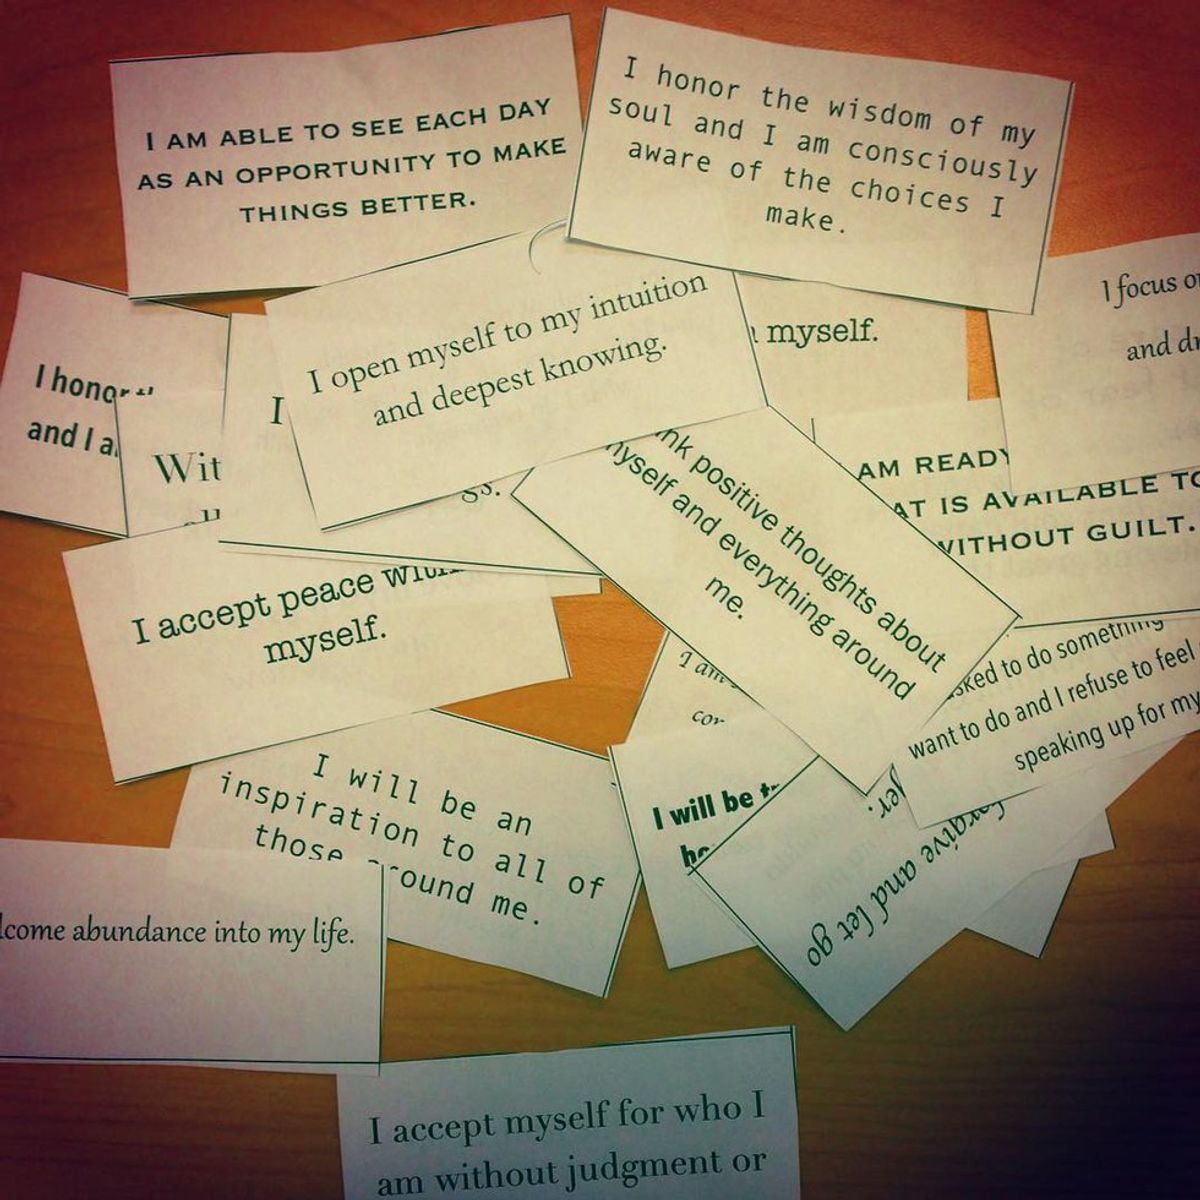 I AM ABLE TO SEE EACH DAY
AS AN OPPORTUNITY TO MAKE
THINGS BETTER.
I honor the wisdom of my
soul and I am consciously
aware of the choices I
make.
I open myself to my intuition
and deepest knowing.
myself.
I focus
and
I honor
and I
Wit
I
nk positive thoughts about
myself and everything around
me.
AM READY
AT IS AVAILABLE TO
WITHOUT GUILT.
I accept peace
myself.
I am
asked to do something
want to do and I refuse to feel
speaking up for my
I will be an
inspiration to all of
those around me.
I will be
forgive and let go
come abundance into my life.
I accept myself for who I
am without judgment or